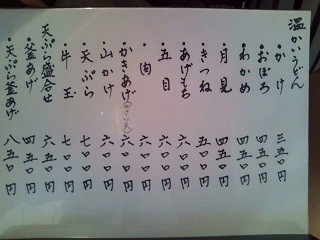 温かいうどん
・かけ 三五〇円
・おぼろ 四五〇円
・わかめ 四五〇円
・月見 四五〇円
・きつね 五〇〇円
・あげもち 六〇〇円
・五目 六〇〇円
・肉 六〇〇円
・かきあげ 六〇〇円
・山かけ 六〇〇円
・天ぷら 七〇〇円
・牛玉 七〇〇円
天ぷら盛合せ 六五〇円
・釜あげ 四五〇円
・天ぷら釜あげ 八五〇円